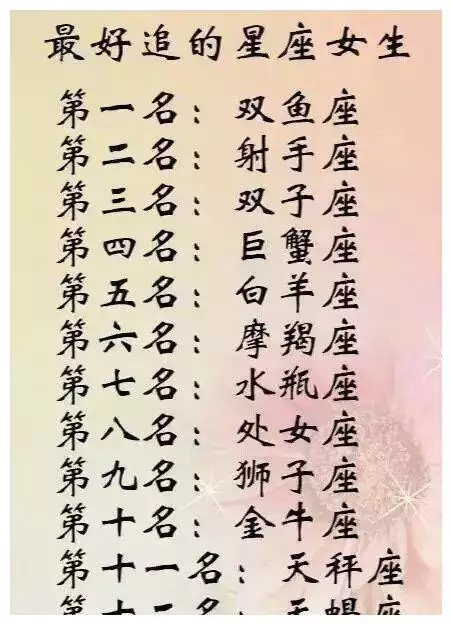 最好追的星座女生
第一名：双鱼座
第二名：射手座
第三名：双子座
第四名：巨蟹座
第五名：白羊座
第六名：摩羯座
第七名：水瓶座
第八名：处女座
第九名：狮子座
第十名：金牛座
第十一名：天秤座
第十二名：天蝎座